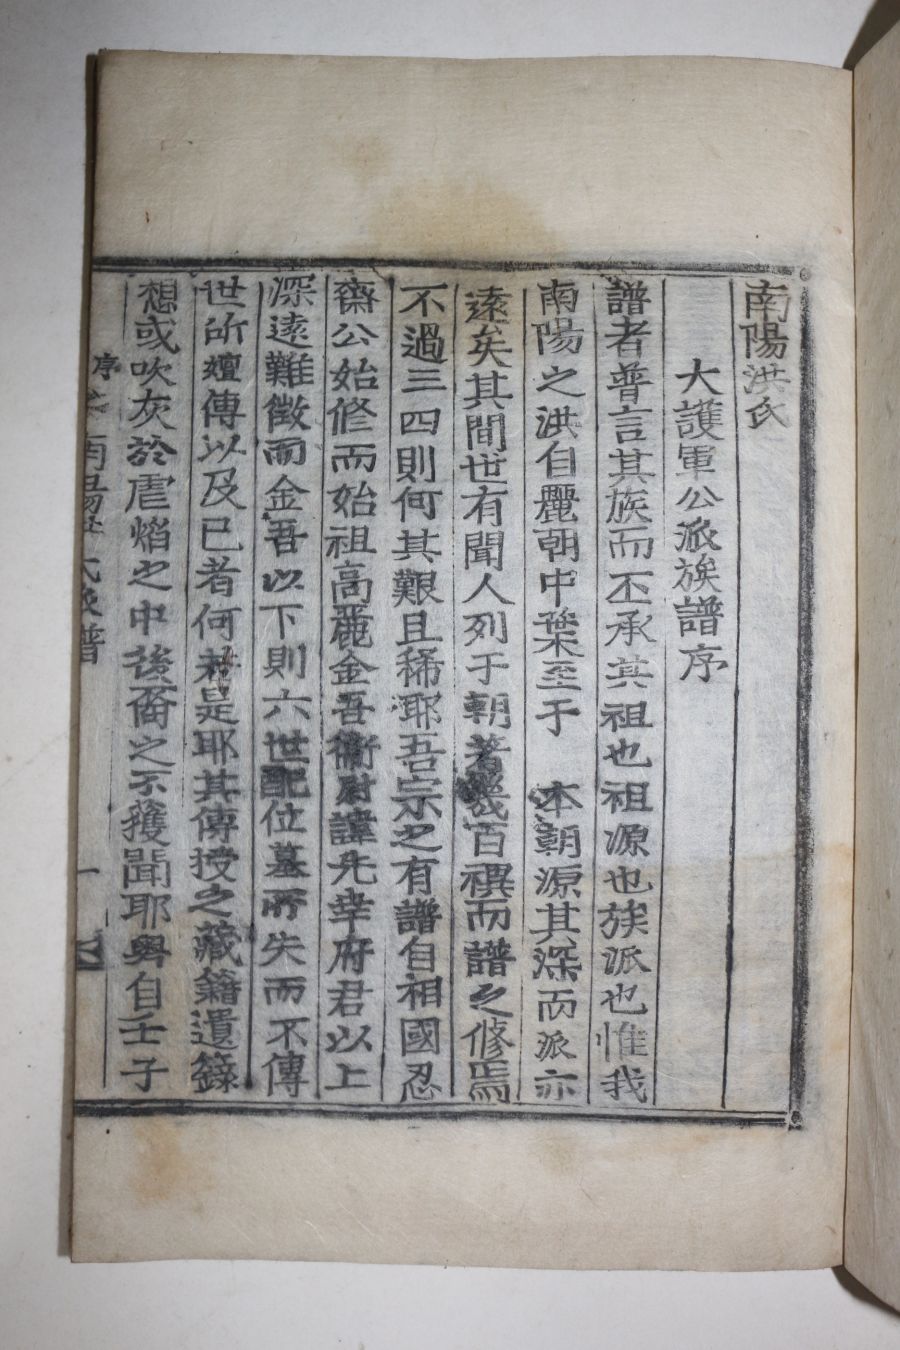 南陽洪氏
大護軍公派族譜序
譜者普言其族而丕承其祖也祖源也族派也惟我
南陽之洪自麗朝中葉至于 本朝源其深而派亦
遠矣其間世有聞人列于朝著幾百禩而譜之修焉
不過三四則何其艱且稀耶吾宗之有譜自相國忍
齋公始修而始祖高麗金吾衛尉諱先幸府君以上
深遠難徵而金吾以下則六世配位墓所失而不傳
世所嬗傳以及已者何若是耶其傳授之藏籍遺錄
想或吹灰於虐焰之中後裔之不獲聞耶粤自壬子
序 南陽洪氏族譜 一